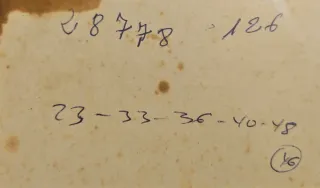 28778 · 126
23 - 33 - 36 - 40 - 48
46